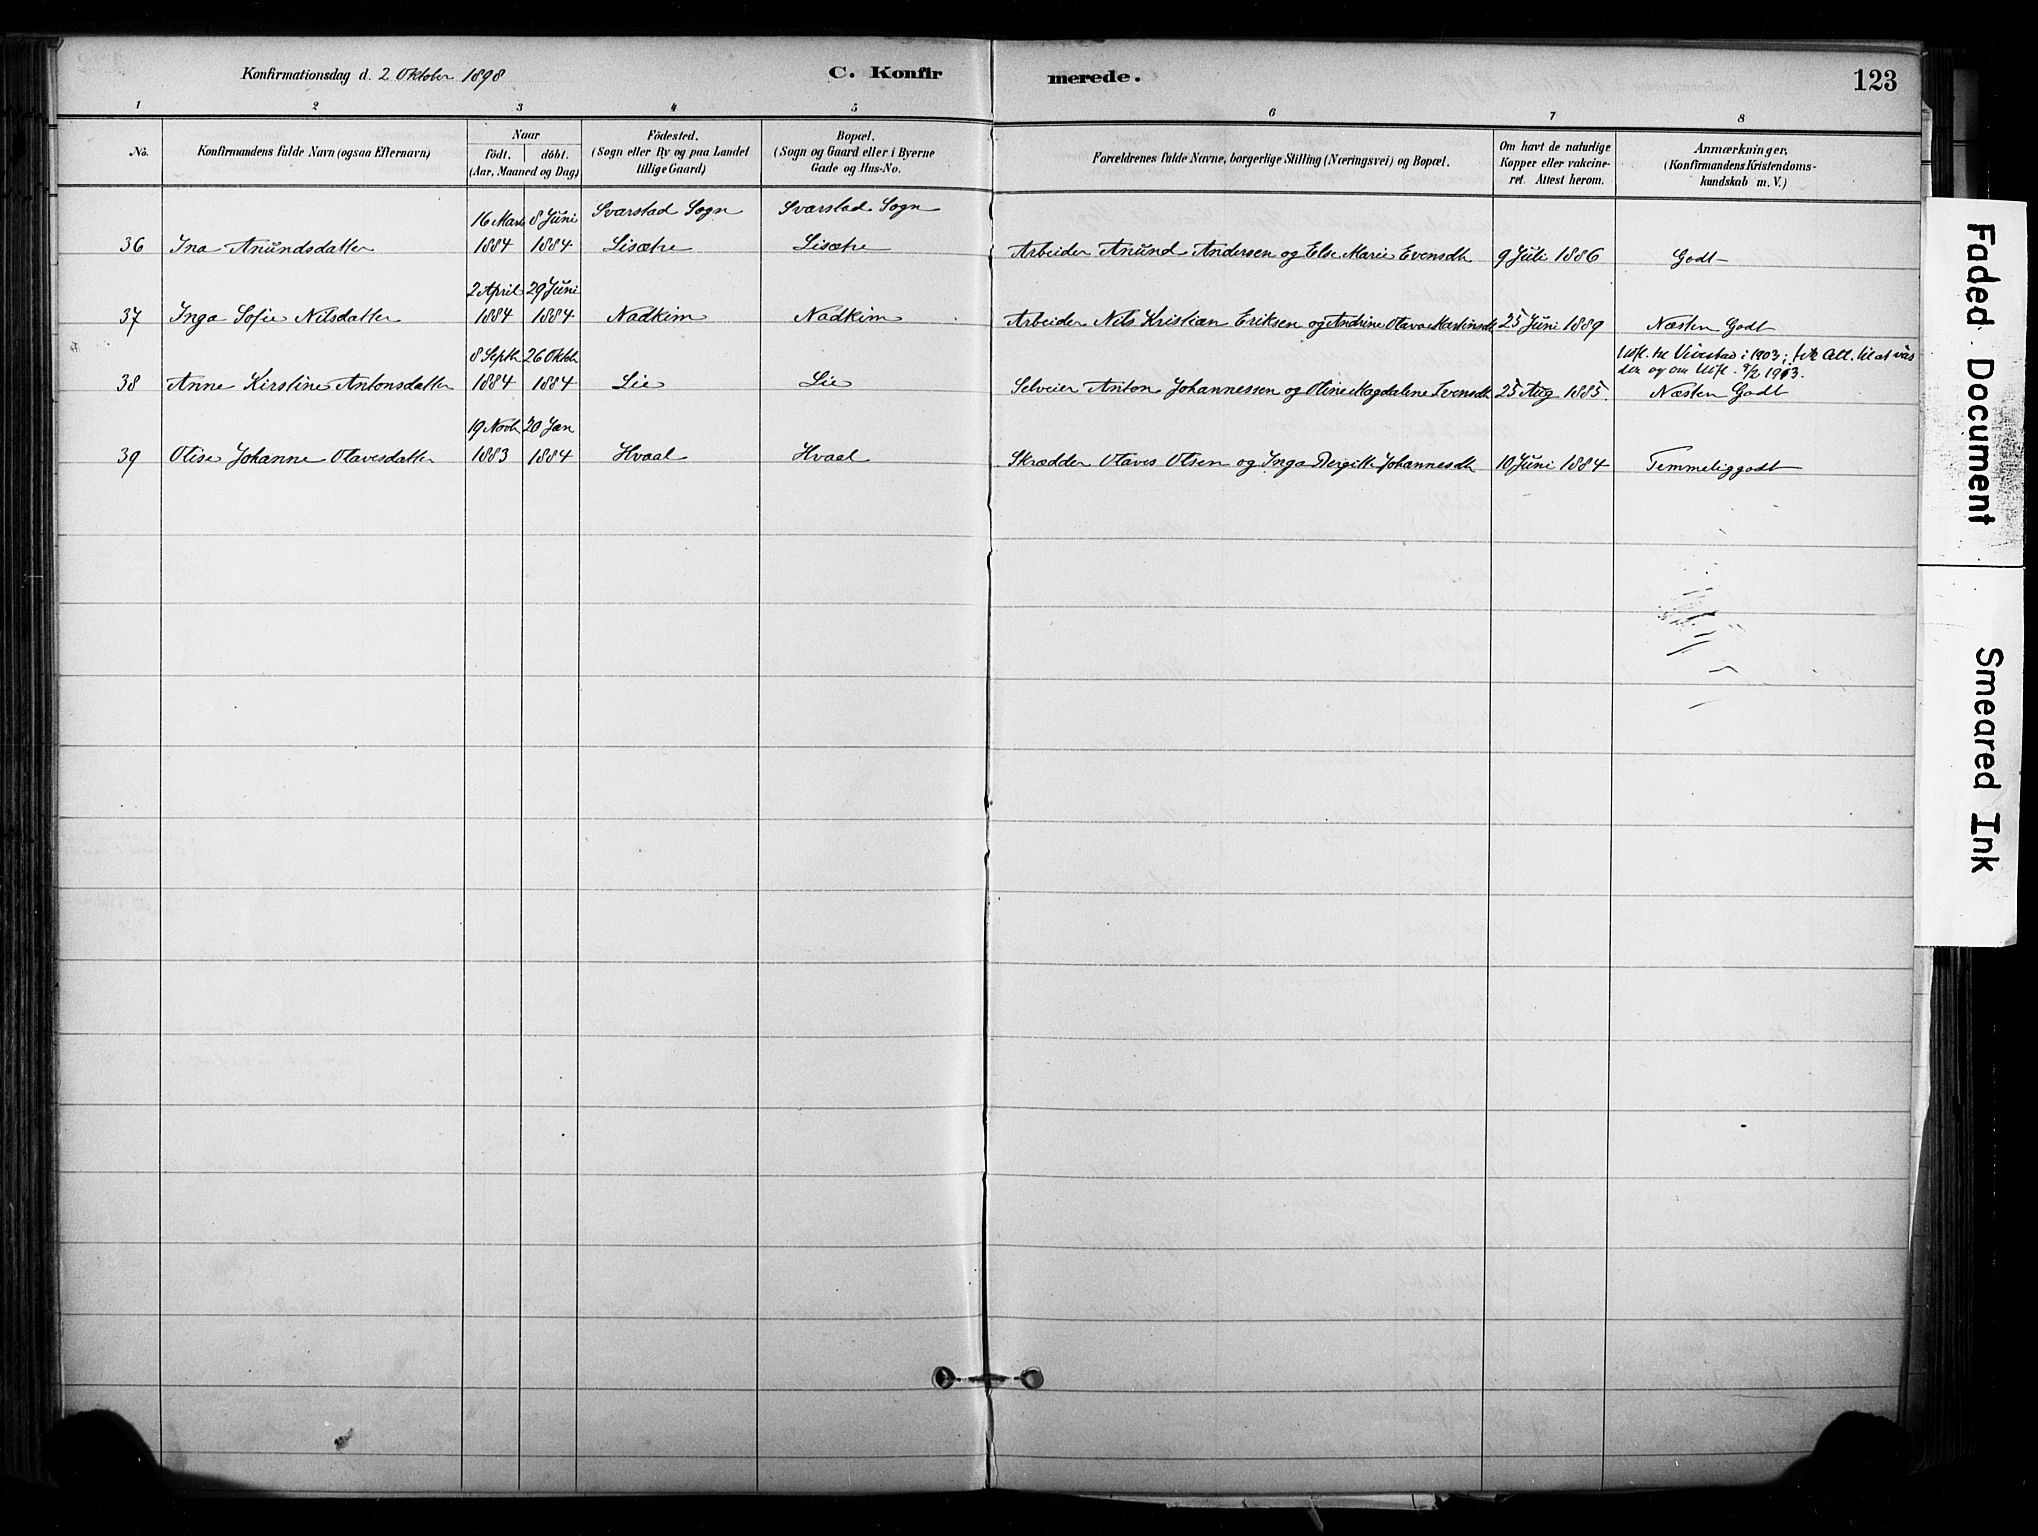 Konfirmationsdag d. 2 Oktober 1898 C. Konfir merede. 123
1 2 3 4 5 6 7 8
No. Konfirmandens fulde Navn (ogsaa Efternavn) Naar födt. döbt. (Aar, Maaned og Dag) Födested. (Sogn eller By og paa Landet tillige Gaard) Bopæl. (Sogn og Gaard eller i Byerne Gade og Hus-No. Forældrenes fulde Navne, borgerlige Stilling (Næringsvei) og Bopæl. Om havt de naturlige Kopper eller vakcineret. Attest herom. Anmærkninger, (Konfirmandens Kristendomskundskab m. V.)
16 Mars 8 Juni Svarstad Sogn Svarstad Sogn
36 Ina Anundsdatter 1884 1884 Lisætre Lisætre Arbeider Anund Andersen og Else Marie Evensdtr 9 Juli 1886 Godt
2 April 29 Juni
37 Inga Sofie Nilsdatter 1884 1884 Nadkim Nadkim Arbeider Nils Kristian Eriksen og Andrine Olava Martinsdtr 25 Juni 1889 Næsten Godt
8 Septb 26 Oktbr Utfl. til i 1903; Att. til at
og om Utfl. 1913.
38 Anne Kirstine Antonsdatter 1884 1884 Lie Lie Selveier Anton Johannessen og Oline Magdalene Evensdtr 25 Aug 1885. Næsten Godt
19 Novbr 20 Jan
39 Olise Johanne Olavesdatter 1883 1884 Hvaal Hvaal Skrædder Olaves Olsen og Inga Bergitte Johannesdtr 10 Juni 1884 Temmelig godt
Faded Document
Smeared Ink